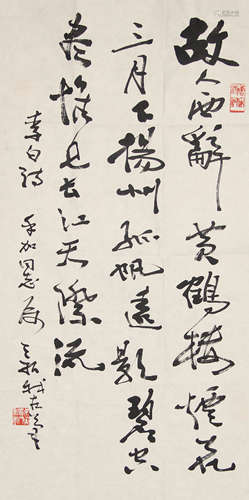 故人西辭黄鶴樓煙花
三月下揚州孤帆遠影碧空
盡惟見長江天際流
李白詩 同志属